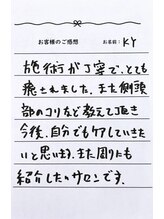 お客様のご感想
お名前：KY
施術が丁寧で、とても
癒されました。また側頭
部のコリなど教えて頂き
今後、自分でもケアしていきた
いと思います。また周りにも
紹介したいサロンです。